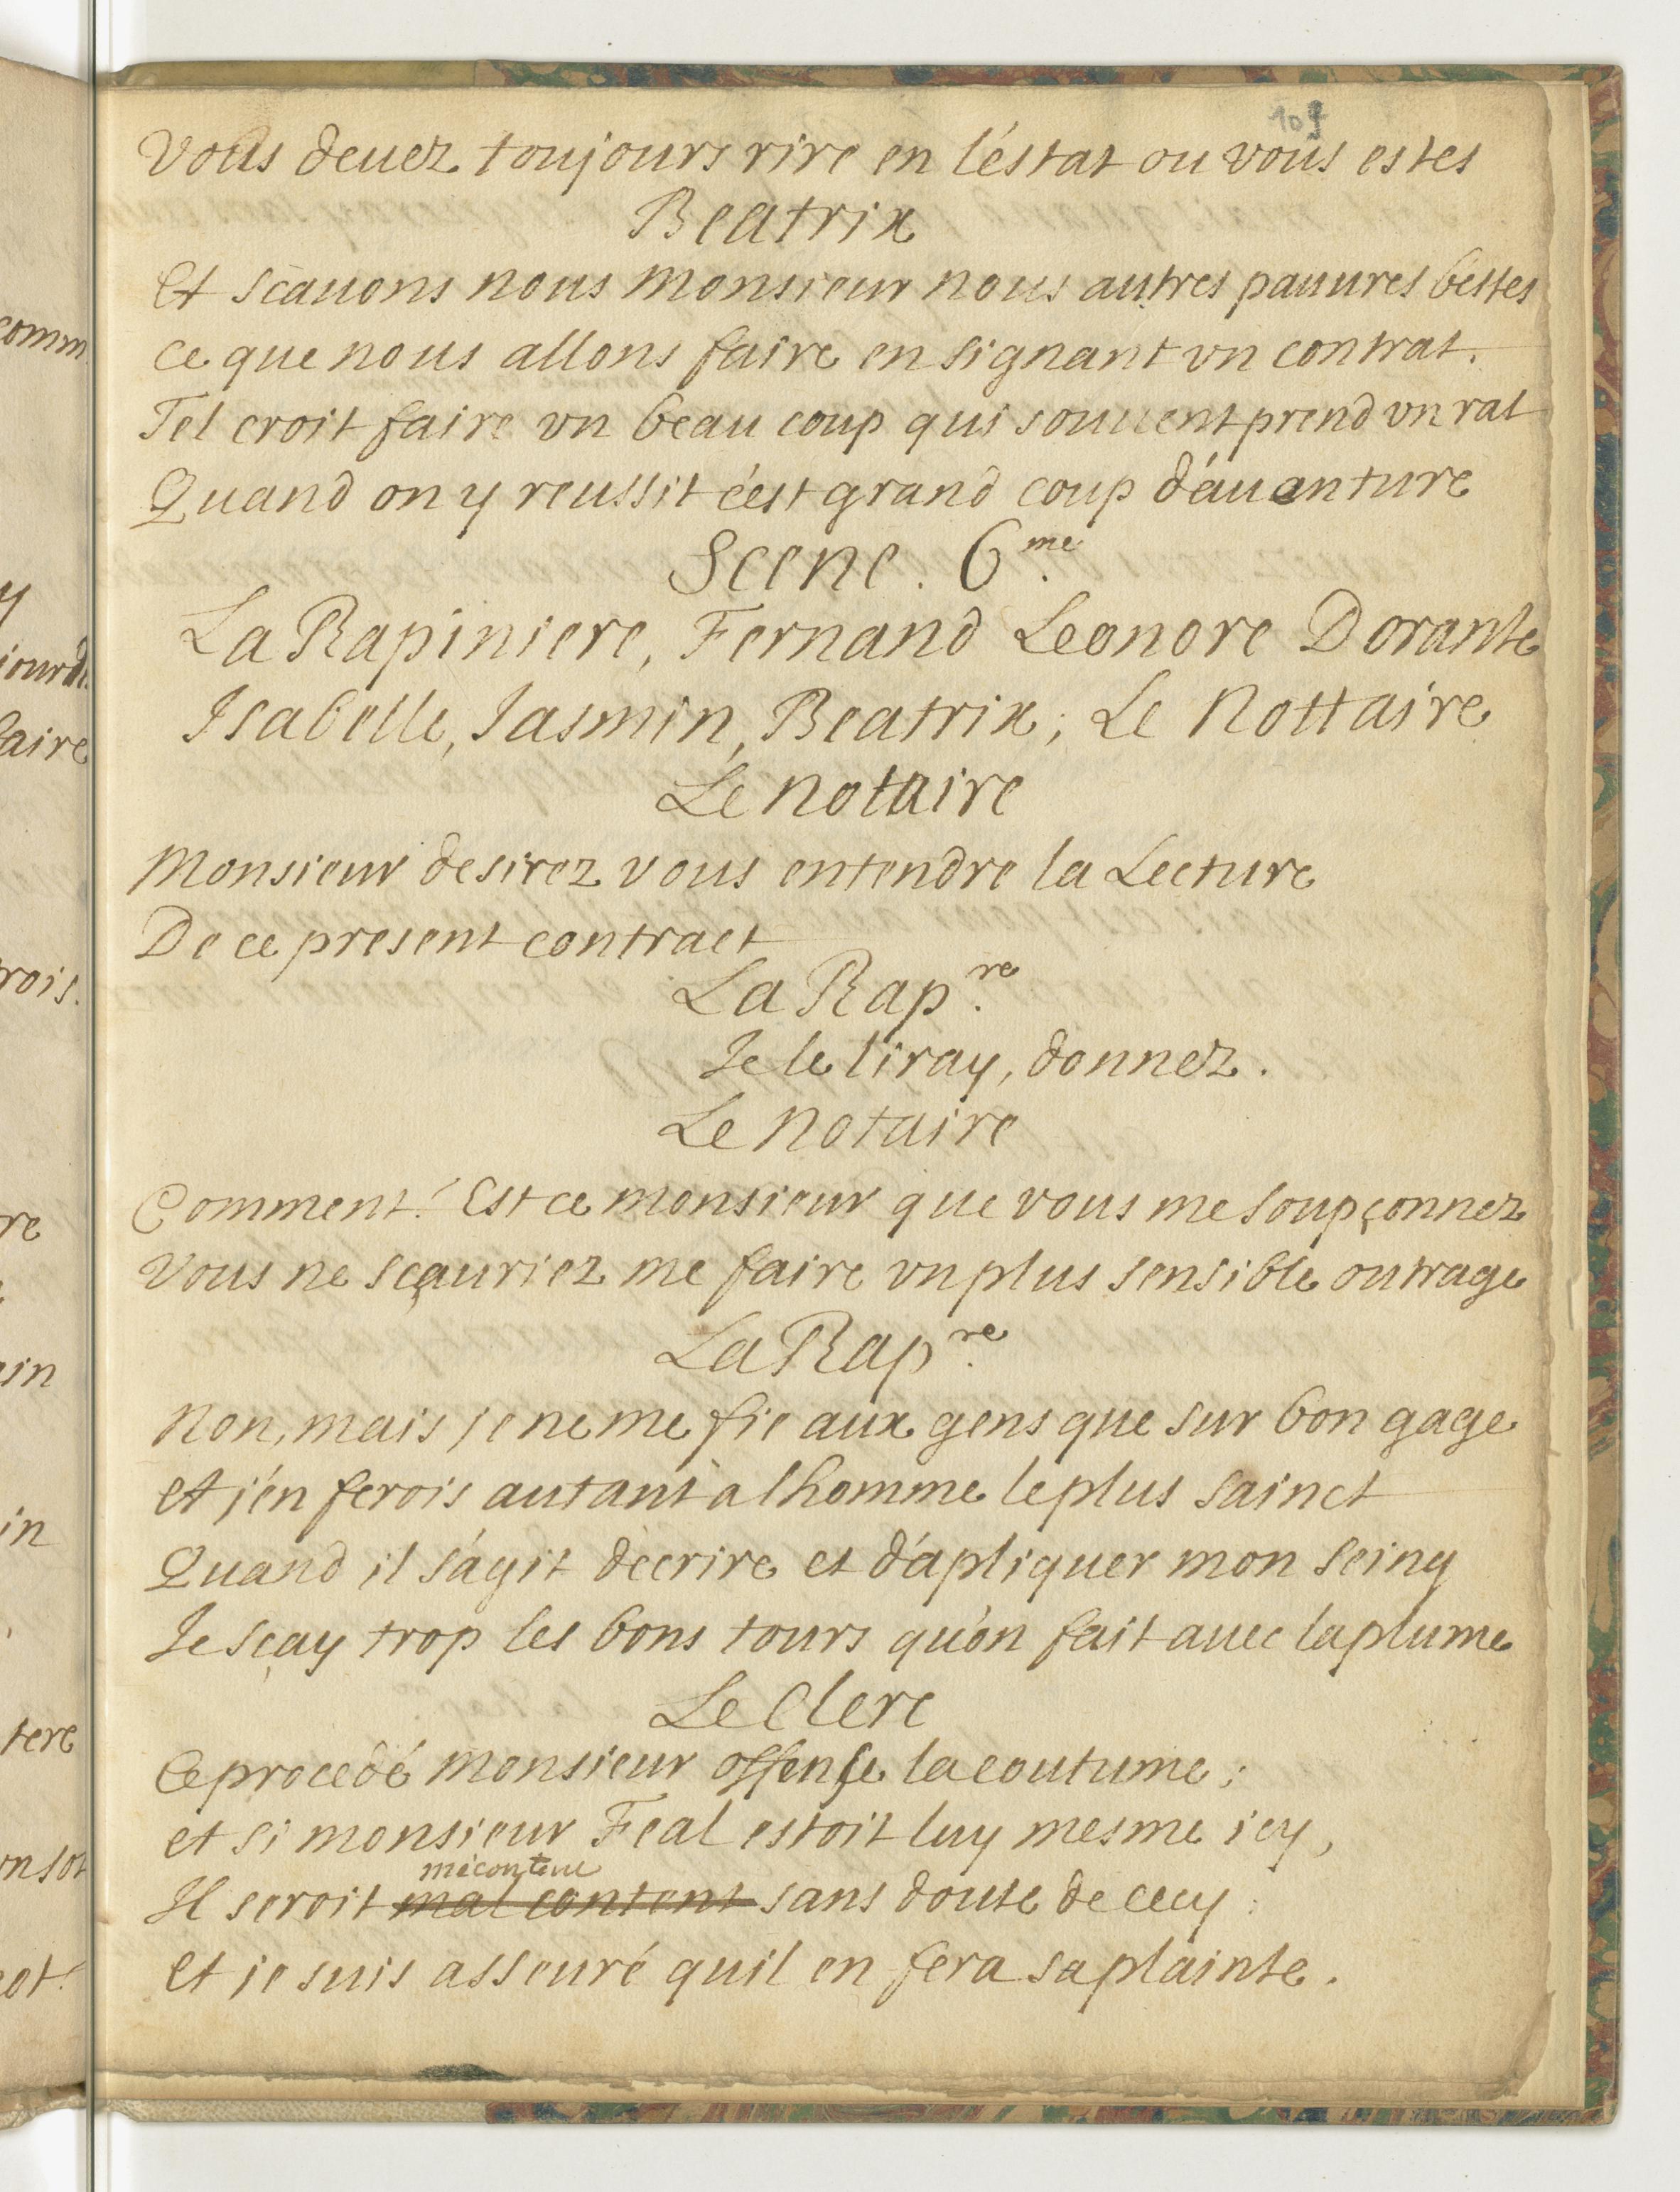 109
Vous deuez toujours rire en l'éstat ou vous estes
Beatrix
Et scauons nous Monsieur nous autres pauures bestes
ce que nous allons faire en signant vn contrat.
Tel croit faire vn beau coup qui souuent prend vn rat
Quand on y reussit c'est grand coup d'áuanture
Scene. 6.me
La Rapiniere, Fernand Leonore Dorante
Isabelle, Jasmin, Beatrix, Le Nottaire
Le Notaire
Monsieur desirez vous entendre la Lecture
De ce present contract
La Rap.re
Je le liray, donnez.
Le Notaire
Comment! Est ce monsieur que vous me soupçonnez
Vous ne sçauriez me faire vn plus sensible outrage
La Rap.re
Non, mais je ne me fie aux gens que sur bon gage
et j'en ferois autant a lhomme le plus sainct
Quand il s'agit décrire et d'apliquer mon seing
Je sçay trop les bons tours qu'on fait auec la plume
Le Clerc
Ce procédé Monsieur offense la coutume;
et si monsieur Feal estoit luy mesme icy,
mécontent
Il seroit mal content sans doute de cecy:
et je suis asseuré quil en fera sa plainte.
comm
y
jourd
faire
rois.
re
in
in
tere
ot!